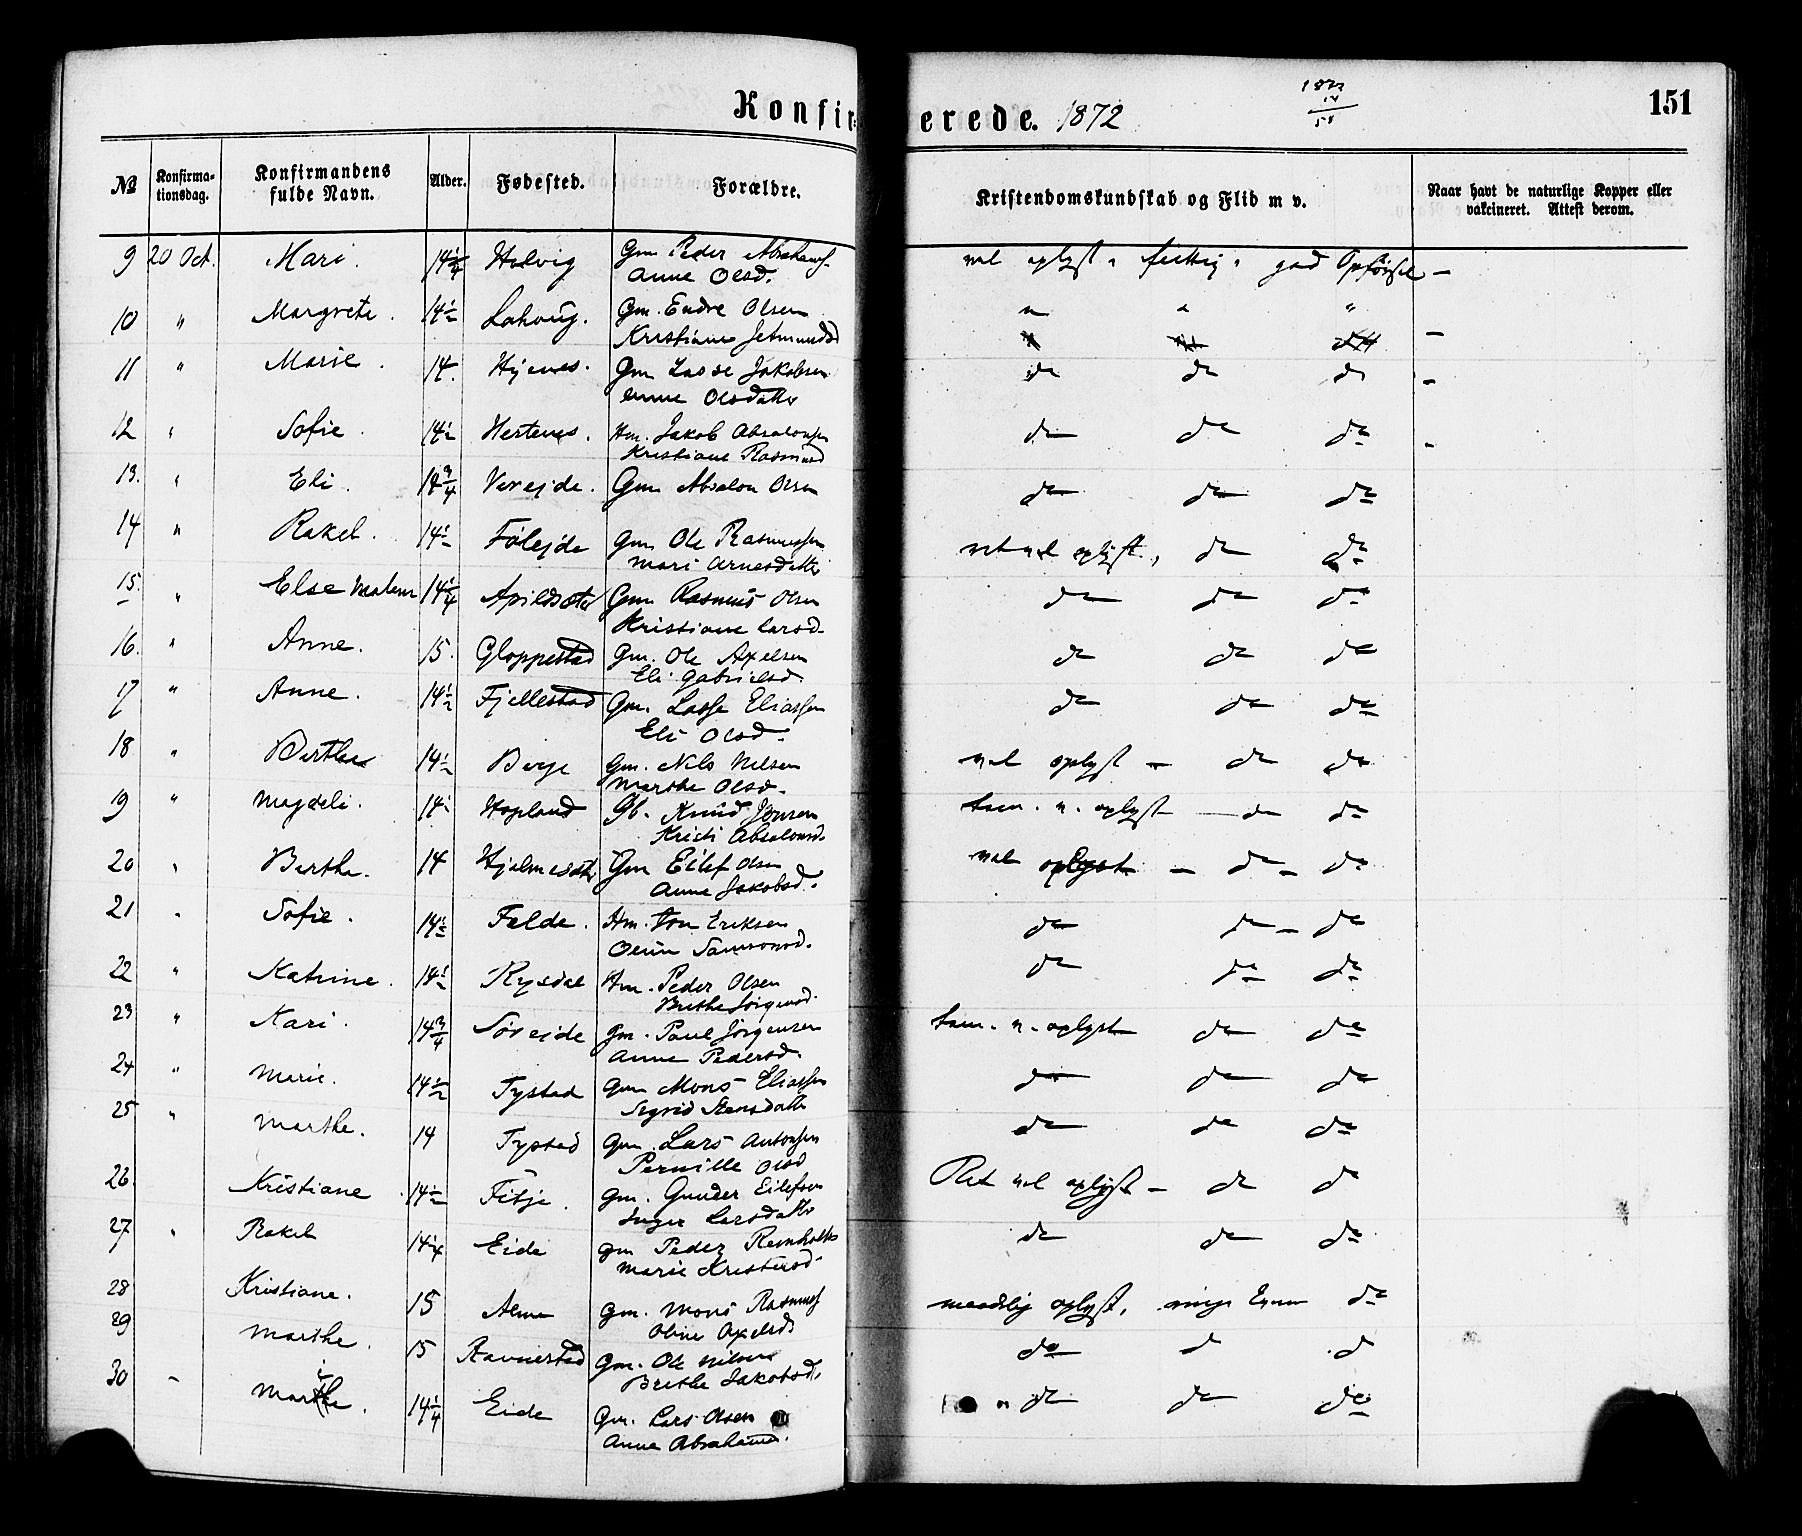 Konfirmerede. 1872
151
№ Konfirmationsdag. Konfirmandens fulde Navn. Alder. Fødested. Forældre. Kristendomskundskab og Flid m v. Naar havt de naturlige Kopper eller vakcineret. Attest derom.
9 20 Oct. Mari. 14 1/4 Gm Peder Abrahams. vel oplyst. flittig. god Opførsel -
Anne Olsd.
10 " Margrete. 14 1/2 Gm. Endre Olsen " " "
Kristiane
11 " Marie. 14. Hjenes. Gm Lasse Jakobsen do do do -
Anne Olsdatter
12 " Sofie. 14 1/2 Hestenes. Hm. Jakob Absalonsen do do do -
Kristiane Rasmusd
13. " Eli. 14 3/4 Verejde. Gm Absalon Olsen do do do
14 " Rakel. 14 1/2 Følejde Gm Ole Rasmussen ret vel oplyst, do do
Mari Arnesdatter
15. " Else 14 1/4 Apildsæter Gm Rasmus Olsen do do do
Kristiane Larsd.
16. " Anne. 15. Gloppestad Gm. Ole Axelsen do do do
Eli Gabrielsd.
17 " Anne. 14 1/2 Fjellestad Gm. Lasse Eliassen do do do
Eli Olsd.
18 " Berthe 14 1/2 Berge Gm. Nils Nilsen vel oplyst - do do
Marthe Olsd.
19 " Magdeli. 14 1/2 Hopland Gb. Knud Jensen tem. v. oplyst do do
Kristi Absalonsd.
20 " Berthe. 14 Hjelmesæter Gm Eilef Olsen vel oplyst - do - do
Anne Jakobsd.
21 " Sofie. 14 1/2 Felde. Hm. Jon Eriksen do do - do
Oline Samsonsd.
22 " Katrine. 14 1/2 Rysdal Hm. Peder Olsen do do do
Brithe Jørgensd.
23 " Kari. 14 3/4 Søreide Gm. Paul Jørgensen tem. v. oplyst do do
Anne Pedersd.
24 " Marie. 14 1/2 Tystad Gm Mons Eliassen do do do
Sigrid Stensdatter
25 " Marthe. 14 Tystad Gm. Lars Antonsen do do do
Pernille Olsd
26. Kristiane 14 1/2 Fitje. Gm. Gunder Eilefsen Ret vel oplyst - do do
Inger Larsdatter
27 " Rakel 14 1/4 Eide Gm Peder Reinholts do do do
Marie Kristensd.
28 Kristiane. 15 Alme Gm. Mons Rasmuss maadelig oplyst, ringe Evner do
Oline Axelsd.
29 Marthe. 15 Ravnestad Gm. Ole Nilsen do do do
Brethe Jakobsd.
30 - 14 1/4 Eide Gm. Lars Olsen do do do
Anne Abrahamsd.